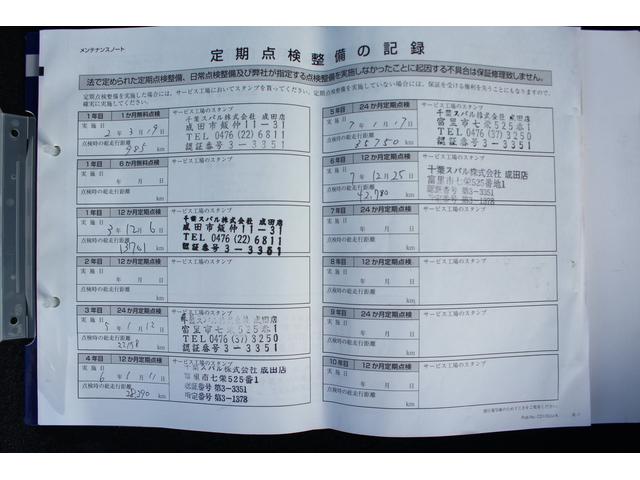 メンテナンスノート
定期点検整備の記録
法で定められた定期点検整備、日常点検整備及び弊社が指定する点検整備を実施しなかったことに起因する不具合は保証修理致しません。
定期点検整備を実施した場合には、サービス工場でスタンプを貰ってください。定期点検整備を実施していない場合には、保証を受ける権利を失うことにもなりますので、
確実に実施してください。
1年目 1か月無料点検
サービス工場のスタンプ
実施日
2年3月17日
点検時の総走行距離
985 km
千葉スバル株式会社 成田店
成田市飯仲11-31
TEL 0476 (22) 6811
認証番号 3-3351
1年目 6か月無料点検
サービス工場のスタンプ
実施日
年 月 日
点検時の総走行距離
km
1年目 12か月定期点検
サービス工場のスタンプ
実施日
3年12月6日
点検時の総走行距離
km
千葉スバル株式会社 成田店
成田市飯仲11-31
TEL 0476 (22) 6811
認証番号 3-3351
2年目 12か月定期点検
サービス工場のスタンプ
実施日
年 月 日
点検時の総走行距離
km
3年目 24か月定期点検
サービス工場のスタンプ
実施日
5年1月12日
点検時の総走行距離
km
千葉スバル株式会社 成田店
富里市七栄525番1
TEL 0476 (37) 3250
認証番号 3-3351
4年目 12か月定期点検
サービス工場のスタンプ
実施日
6年1月11日
点検時の総走行距離
28390 km
千葉スバル株式会社 成田店
富里市七栄525番1
認証番号 第3-3351
指定番号 第3-1378
5年目 24か月定期点検
サービス工場のスタンプ
実施日
7年1月17日
点検時の総走行距離
35750 km
千葉スバル株式会社 成田店
富里市七栄525番1
TEL 0476 (37) 3250
認証番号 3-3351
6年目 12か月定期点検
サービス工場のスタンプ
実施日
7年12月25日
点検時の総走行距離
42,780 km
千葉スバル株式会社 成田店
富里市七栄525番地1
認証番号 第3-3351
指定番号 第3-1378
7年目 24か月定期点検
サービス工場のスタンプ
実施日
年 月 日
点検時の総走行距離
km
8年目 12か月定期点検
サービス工場のスタンプ
実施日
年 月 日
点検時の総走行距離
km
9年目 24か月定期点検
サービス工場のスタンプ
実施日
年 月 日
点検時の総走行距離
km
10年目 12か月定期点検
サービス工場のスタンプ
実施日
年 月 日
点検時の総走行距離
km